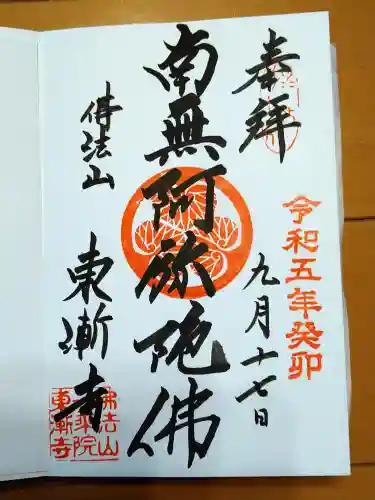 奉拝
令和五年癸卯
九月十七日
南無阿弥陀佛
佛法山
東漸寺
佛法山
東漸寺